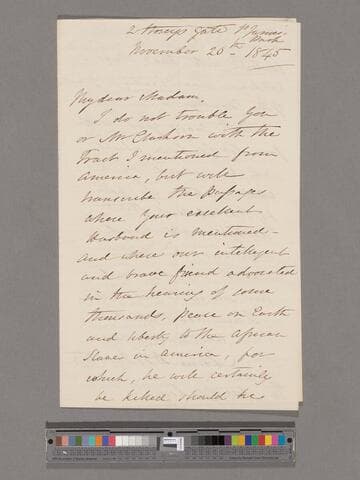 2 Storeys Gate St James's
Park
November 20th 1845
My dear Madam,
I do not trouble you
or Mr Clarkson with the
Tract I mentioned from
America, but will
transcribe the passages
where your excellent
Husband is mentioned -
and where our intelligent
and brave friend advocated
in the hearing of some
thousands, peace on Earth
and liberty to the African
Slaves in America, for
which, he will certainly
be killed should he